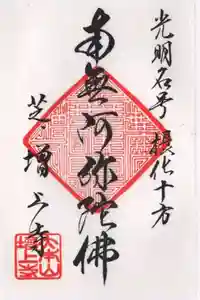 光明名号摂化十方
南無阿弥陀佛
芝・増上寺
三縁山
増上寺